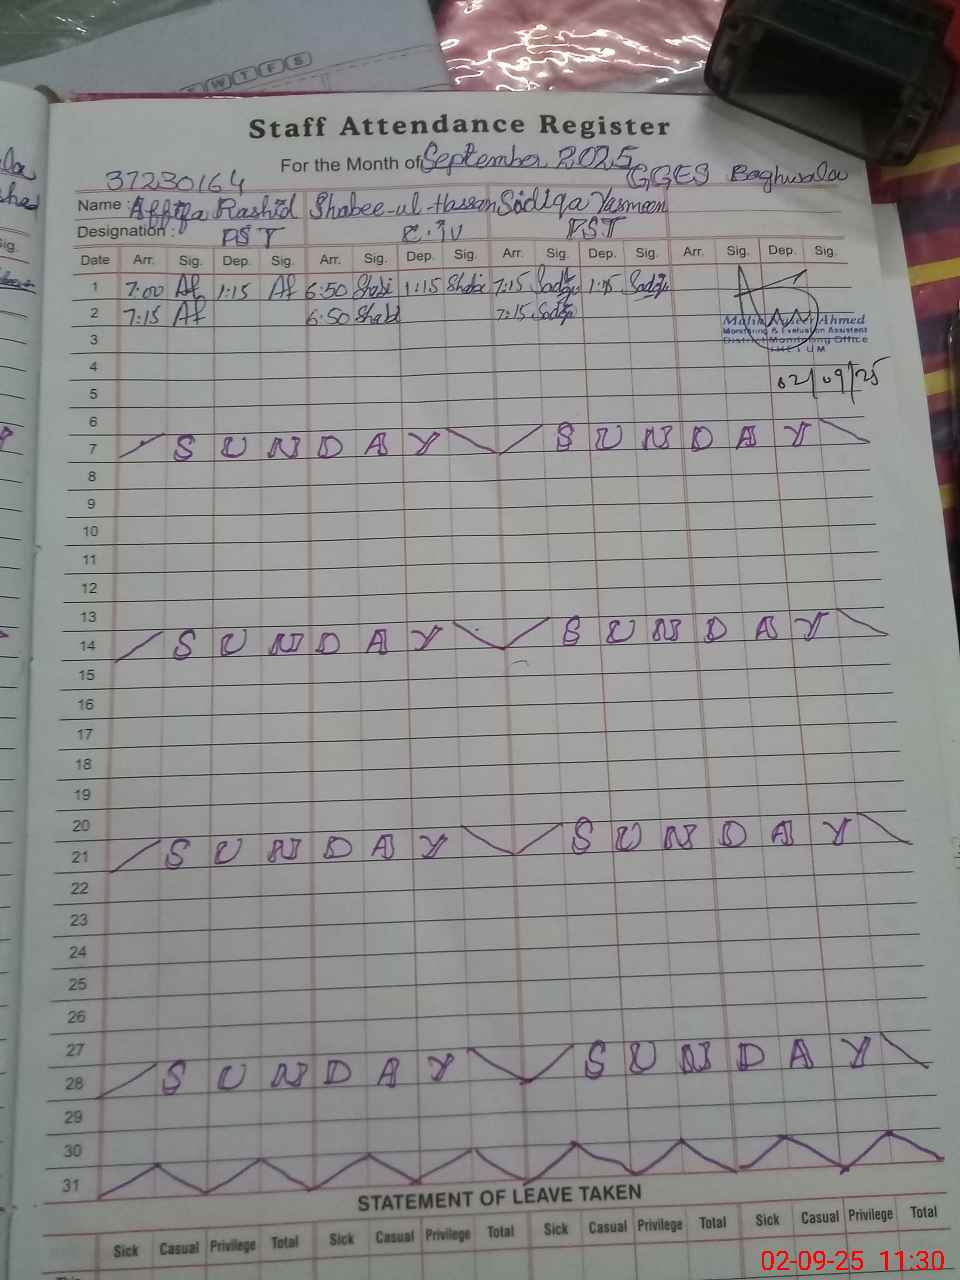 W T F S
Staff Attendance Register
For the Month of September 2025
37230164 GGES Baghwala
Name : Affifa Rashid Shabee-ul-Hassan Sadiqa Yasmeen
Designation : PST E.S.T PST
Date Arr. Sig. Dep. Sig. Arr. Sig. Dep. Sig. Arr. Sig. Dep. Sig. Arr. Sig. Dep. Sig.
1 7:00 Af 1:15 Af 6:50 Shabi 1:15 Shabi 7:15 Sadiqa 1:15 Sadiqa
2 7:15 Af 6:50 Shabi 7:15 Sadiqa
Ahmed
Monitoring & Evaluation Assistant
District Monitoring Office
3
4
02/09/25
5
6
7 S U N D A Y S U N D A Y
8
9
10
11
12
13
14 S U N D A Y S U N D A Y
15
16
17
18
19
20
21 S U N D A Y S U N D A Y
22
23
24
25
26
27
28 S U N D A Y S U N D A Y
29
30
31
STATEMENT OF LEAVE TAKEN
Sick Casual Privilege Total Sick Casual Privilege Total Sick Casual Privilege Total Sick Casual Privilege Total
02-09-25 11:30